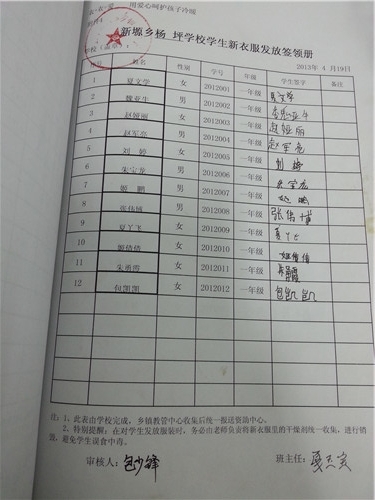 用爱心呵护孩子冷暖
新塬乡杨 坪学校学生新衣服发放签领册
2013年 4 月19日
序号 姓名 性别 学号 年级 学生签字 备注
1 夏文学 女 2012001 一年级 夏文学
2 魏亚生 男 2012002 一年级
3 赵娅丽 女 2012003 一年级 赵娅丽
4 赵军亮 男 2012004 一年级 赵军亮
5 刘 婷 女 2012005 一年级 刘婷
6 朱宝龙 男 2012006 一年级 朱宝龙
7 姬 鹏 男 2012007 一年级 姬鹏
8 张伟博 男 2012008 一年级 张伟博
9 夏丫飞 女 2012009 一年级 夏丫飞
10 姬倩倩 女 2012010 一年级 姬倩倩
11 朱勇霞 女 2012011 一年级
12 包凯凯 女 2012012 一年级 包凯凯
注：1、此表由学校完成，乡镇教管中心收集后统一报送资助中心。
2、特别提醒：在对学生发放服装时，务必由老师负责将新衣服里的干燥剂统一收集，进行销
毁，避免学生误食中毒。
审核人： 包少锋 班主任：